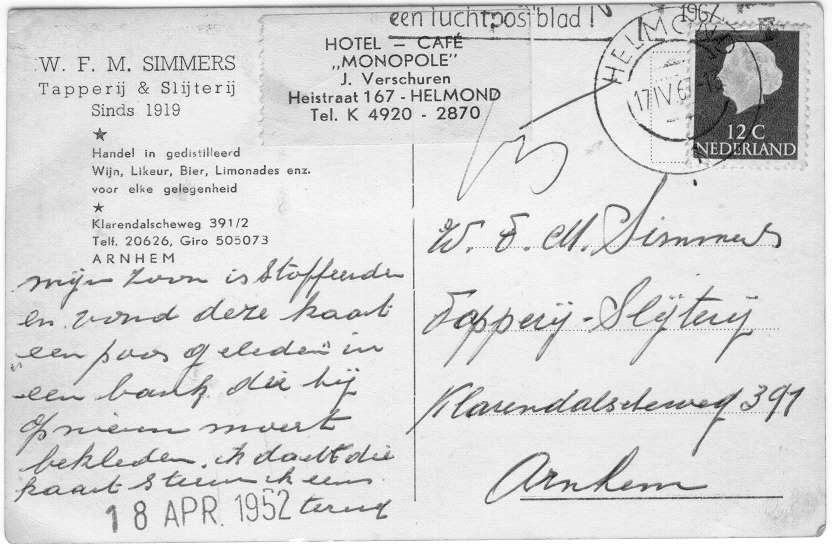 een luchtpostblad!
W. F. M. SIMMERS
Tapperij & Slijterij
Sinds 1919
Handel in gedistilleerd
Wijn, Likeur, Bier, Limonades enz.
voor elke gelegenheid
Klarendalscheweg 391/2
Telf. 20626, Giro 505073
ARNHEM
HOTEL – CAFÉ
„MONOPOLE”
J. Verschuren
Heistraat 167 - HELMOND
Tel. K 4920 - 2870
HELMOND
17 IV 6
196
12 C
NEDERLAND
mijn zoon is Stoffeerder
en vond deze kaart
een poos geleden in
een bank die hij
opnieuw moest
bekleden. ik dacht die
kaart stuur ik eens
terug
18 APR. 1952
W. F. M. Simmers
Tapperij-Slijterij
Klarendalscheweg 391
Arnhem